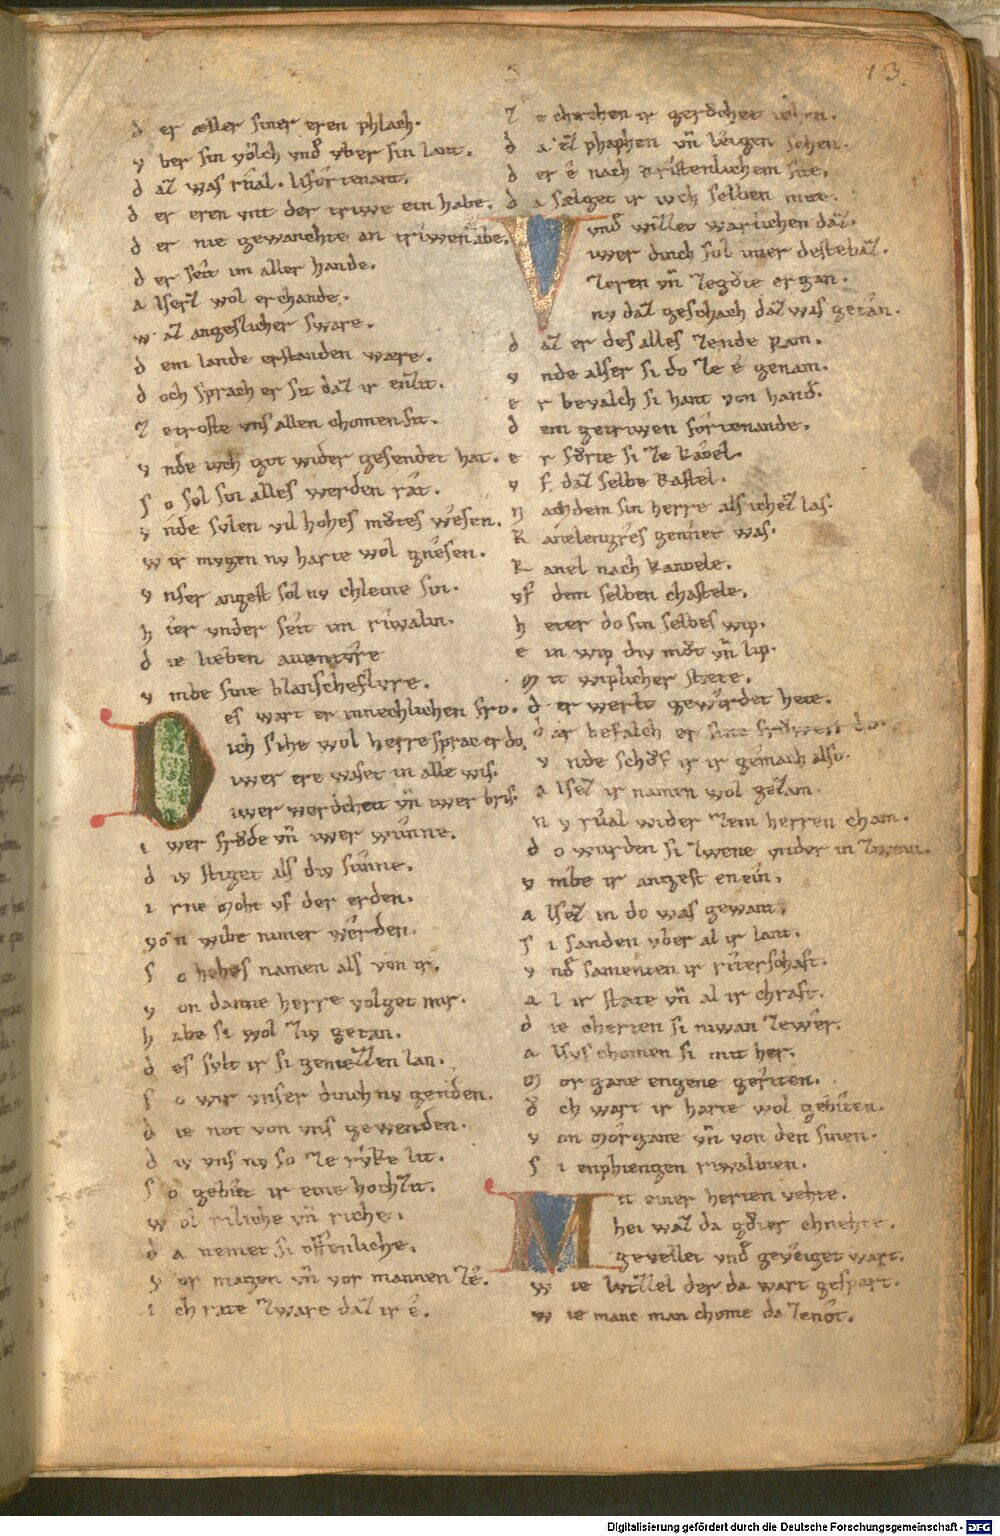 13
d er aller siner eren phlach.
v ber sin volch vnd vber sin lant.
d az was rual. liforienant.
d er eren vnt der triwe ein habe.
d er nie gewanchte an triwen abe.
d er seit im aller hande.
a lserz wol erchande.
w az angeslicher sware.
d em lande erstanden ware.
d och sprach er sit daz ir enzit.
z etroste vns allen chomen sit.
v nde wch got wider gesendet hat.
s o sol sin alles werden rat.
v nde svlen vil hohes mvtes wesen.
w ir mvgen nv harte wol gnesen.
v nser angest sol nv chleine sin.
h ier vnder seit im riwalin.
d ie lieben auentvre
v mbe sine blanscheflvre.
D es wart er innechlichen fro.
ich sihe wol herre sprac er do.
iwer ere waset in alle wis.
iwer werdcheit vn iwer bris.
i wer frode vn iwer wunne.
d iv stiget als div sunne.
i rne moht vf der erden.
von wibe nimer werden.
s o hohes namen als von ir.
v on danne herre volget mir.
h abe si wol ziv getan.
d es svlt ir si geniezzen lan.
s o wir vnser dinch nv genden.
d ie not von vns gewenden.
d iv vns nv so ze ryke lit.
s o gebiet ir eine hochzit.
w ol riliche vn riche.
d a nemet si offenliche.
v or magen vn vor mannen ze.
i ch rate zware daz ir e.
z e chirchen ir geruchet iehen.
d a ez phaphen vn leigen sehen.
d er e nach kristenlichem site.
d a sælget ir wch selben mite.
V nd wizzet warlichen daz.
iwer dinch sol imer deste baz.
zeren vn zegvte ergan.
nv daz geschach daz was getan.
d az er des alles zende kam.
v nde alser si do ze e genam.
e r bevalch si hant von hand.
d em getriwen foritenande.
e r fvrte si ze kanel.
v f daz selbe kastel.
n ach dem sin herre als ichez las.
k anelengres gennet was.
k anel nach kanoele.
vf dem selben chastele.
h eter do sin selbes wip.
e in wip div mvt vn lip.
m it wiplicher stæte.
d er werlt gewirdet hete.
d ar befalch er sine frowen do.
v nde schvf ir ir gemach also.
a lsez ir namen wol gezam.
n v rual wider zem herren cham.
d o wurden si zwene vnder in zwein.
v mbe ir angest enein.
a lsez in do was gewant.
s i sanden vber al ir lant.
v nd samenten ir riterschaft.
a l ir state vn al ir chraft.
d ie cherten si niwan zewer.
a lsvs chomen si mit her.
m organe engene geriten.
o ch wart ir harte wol gebiten.
v on morgane vn von den sinen.
s i enphiengen riwalinen.
M it einer herten vehte.
hei waz da gvter chnehte.
gevellet vnd geveiget wart.
w ie wizzel der da wart gespart.
w ie manc man chome da zenot.
Digitalisierung gefördert durch die Deutsche Forschungsgemeinschaft - DFG